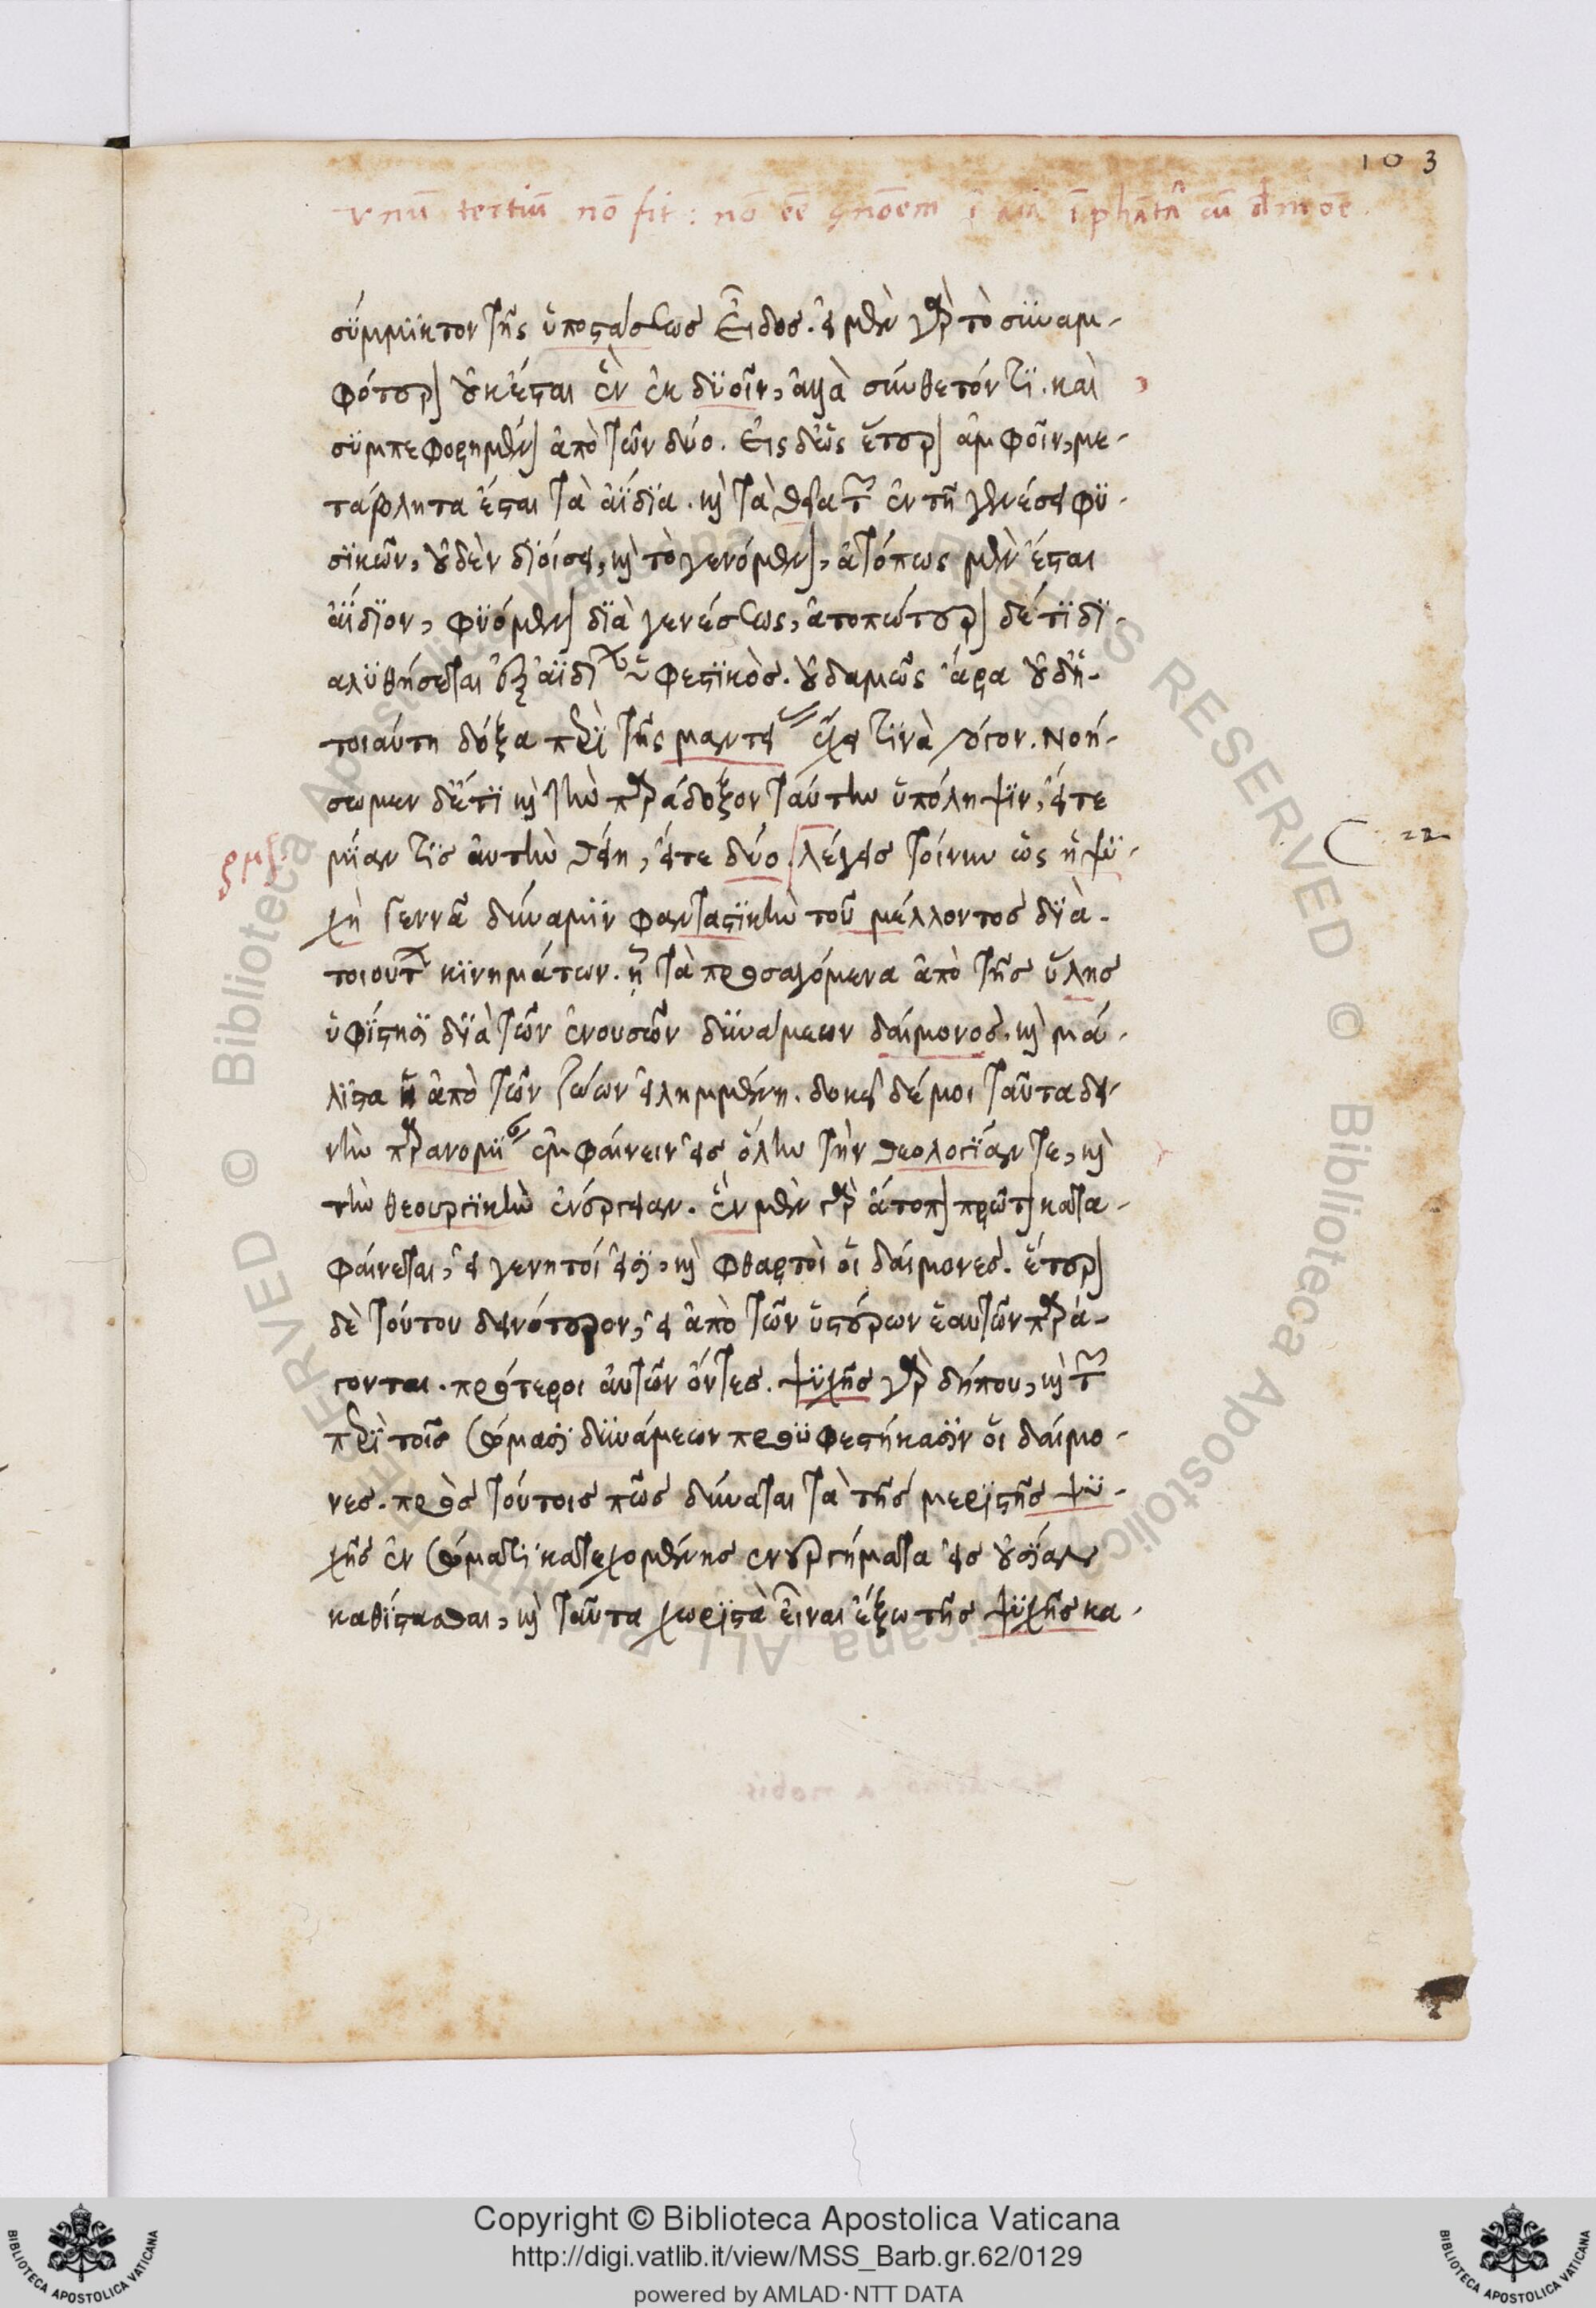 103
unū tertiū nō fit : nō eē
σύμμϊκτον τῆς ὑποστάσεως εἶδος. εἰ μὲν γὰρ τὸ συναμ-
φότερον οὐκ ἔσται ἓν ἐκ δυοῖν, ἀλλὰ σύνθετόν τι. καὶ
συμπεφορημένον ἀπὸ τῶν δύο. εἰ δ' ὡς ἕτερον ἀμφοῖν, με-
τάβλητα ἔσται τὰ ἀΐδια. καὶ τὰ θεῖα τῶν ἐν τῇ γενέσει φυ-
σικῶν, οὐδὲν διοίσει, καὶ τὸ γενόμενον, ἀτόπως μὲν ἔσται
ἀΐδιον, φυόμενον διὰ γενέσεως, ἀτοπώτερον δέ τι δι-
αλυθήσεται ἐξ ἀϊδίων ὑφεστηκός. οὐδαμῶς ἄρα οὐδ' ἡ
τοιαύτη δόξα περὶ τῆς μαντείας ἔχει τινὰ λόγον. Νοή-
σωμεν δ' ἔτι καὶ τὴν παράδοξον ταύτην ὑπόληψιν, εἴτε
μίαν τις αὐτὴν θείη, εἴτε δύο. λέγεις τοίνυν ὡς ἡ ψυ-
χὴ γεννᾷ δύναμιν φανταστικὴν τοῦ μέλλοντος διὰ
τοιούτων κινημάτων. ἢ τὰ προσαγόμενα ἀπὸ τῆς ὕλης
ὑφίστησι διὰ τῶν ἐνουσῶν δυνάμεων δαίμονας. καὶ μά-
λιστα ἡ ἀπὸ τῶν ζώων εἰλημμένη. δοκεῖ δέ μοι ταῦτα δει-
νὴν παρανομίαν ἐμφαίνειν εἰς ὅλην τὴν θεολογίαν τε, καὶ
τὴν θεουργικὴν ἐνέργειαν. ἓν μὲν γὰρ ἄτοπον πρῶτον κατα-
φαίνεται, εἰ γενητοί εἰσι, καὶ φθαρτοὶ οἱ δαίμονες. ἕτερον
δὲ τούτου δεινότερον, εἰ ἀπὸ τῶν ὑστέρων ἑαυτῶν παρά-
γονται. πρότεροι αὐτῶν ὄντες. ψυχῆς γὰρ δήπου, καὶ τῶν
περὶ τοῖς σώμασι δυνάμεων προϋφεστήκασιν οἱ δαίμο-
νες. πρὸς τούτοις πῶς δύναται τὰ τῆς μεριστῆς ψυ-
χῆς ἐν σώματι κατεχομένης ἐνεργήματα εἰς οὐσίαν
καθίστασθαι, καὶ ταῦτα χωριστὰ εἶναι ἔξω τῆς ψυχῆς κα-
Copyright © Biblioteca Apostolica Vaticana
http://digi.vatlib.it/view/MSS_Barb.gr.62/0129
powered by AMLAD · NTT DATA